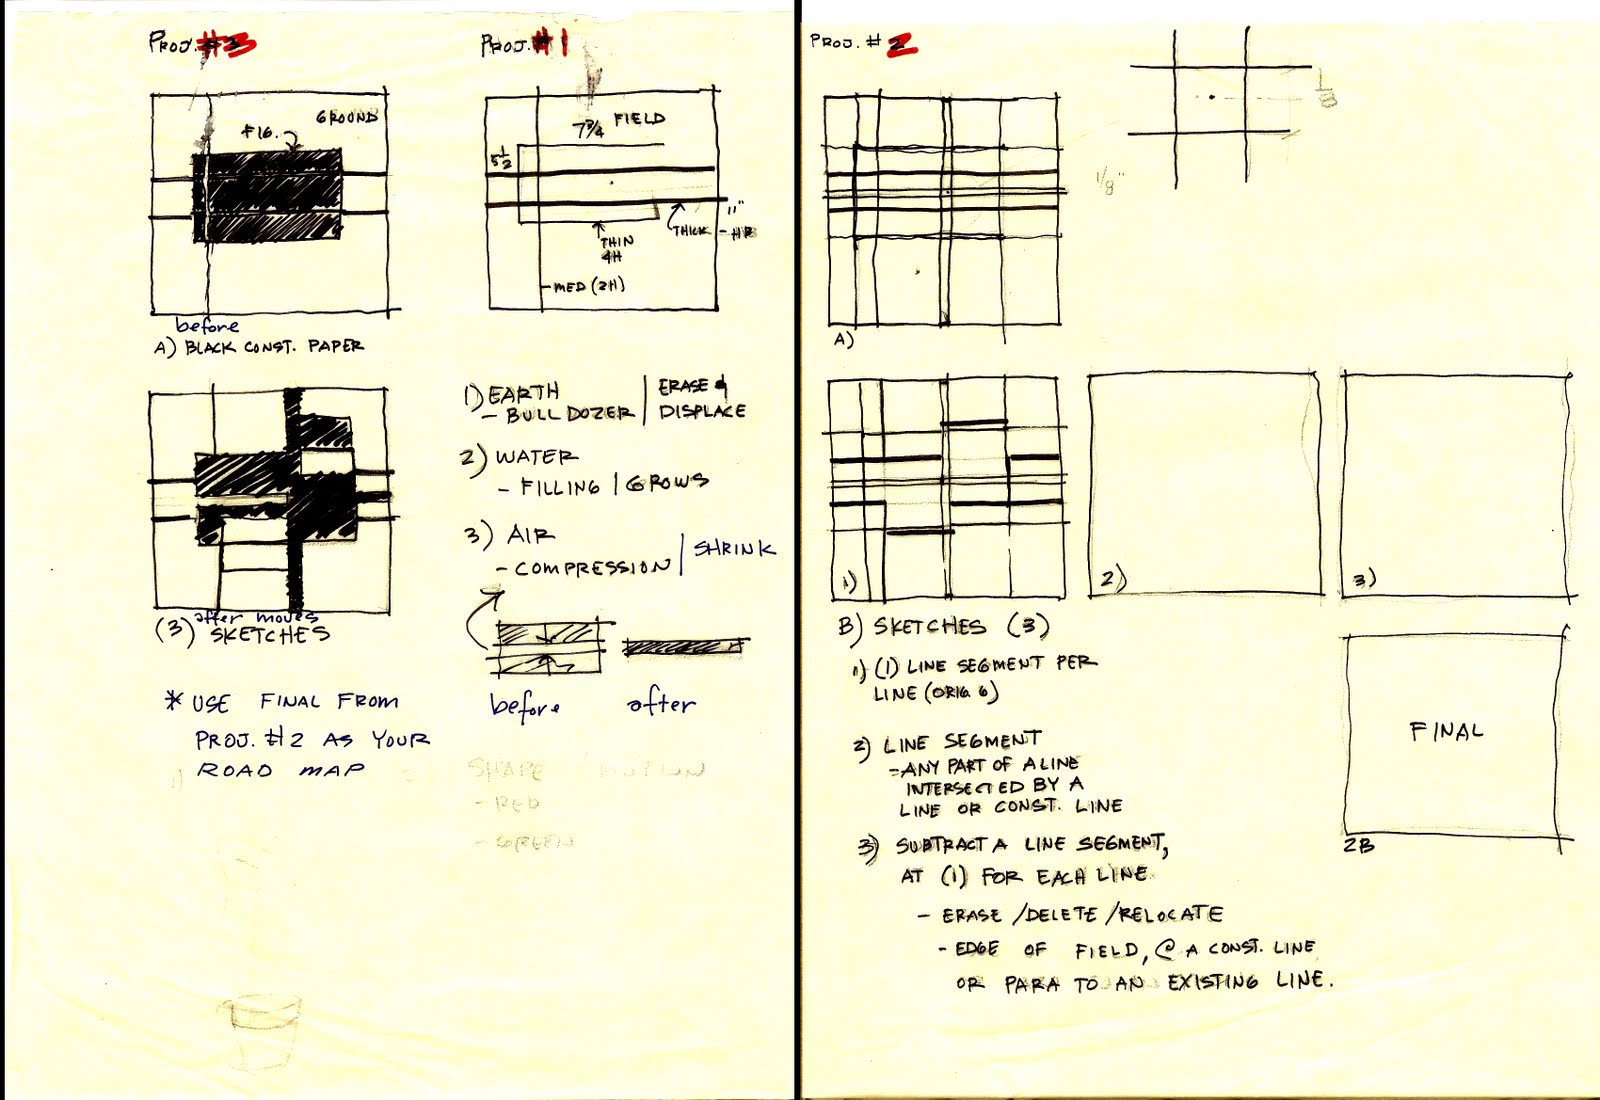 PROJ. #3
GROUND
F16.
before
A) BLACK CONST. PAPER
after moves
(3) SKETCHES
* USE FINAL FROM
PROJ. #2 AS YOUR
ROAD MAP
PROJ. #1
FIELD
7 3/4
5 1/2
1"
THICK - HB
THIN
4H
MED (2H)
1) EARTH
- BULLDOZER | ERASE &
DISPLACE
2) WATER
- FILLING | GROWS
3) AIR
- COMPRESSION | SHRINK
before
after
SHAPE
- RED
- GREEN
PROJ. # 2
1/8
1/8"
A)
1)
2)
3)
B) SKETCHES (3)
1) (1) LINE SEGMENT PER
LINE (ORIG. 6)
2) LINE SEGMENT
= ANY PART OF A LINE
INTERSECTED BY A
LINE OR CONST. LINE
3) SUBTRACT A LINE SEGMENT,
AT (1) FOR EACH LINE
- ERASE / DELETE / RELOCATE
- EDGE OF FIELD, @ A CONST. LINE
OR PARA TO AN EXISTING LINE.
FINAL
2B